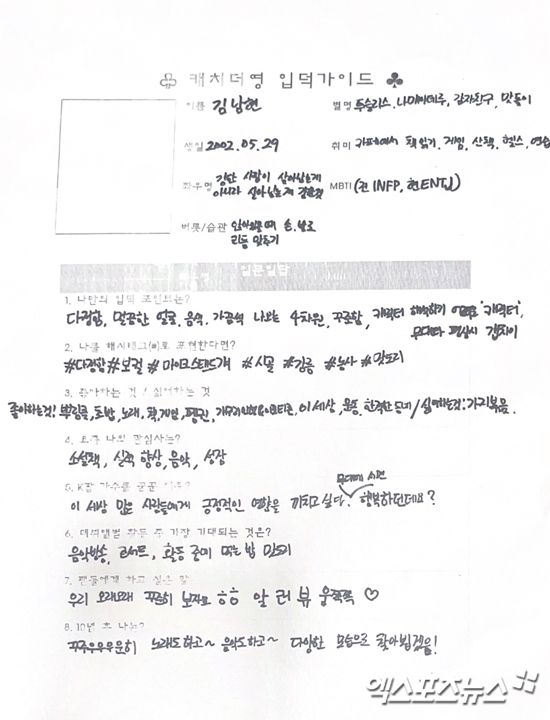 ♧ 캐치더영 입덕가이드 ♣
이름 김남현
별명 투슬리스, 나미나미주, 감자친구, 맛돌이
생일 2002. 05. 29
취미 카페에서 책 읽기, 게임, 산책, 헬스, 연습
좌우명 강한 사람이 살아남는게
아니라 살아남는게 강한것
MBTI (전 INFP, 현 ENTJ)
버릇/습관 앉아있을때 손,발로
리듬 맞추기
일문일답
1. 나만의 입덕 포인트는?
다정함, 말끔한 얼굴, 음색, 가끔씩 나오는 4차원, 꾸준함, 캐릭터
무대와 평상시 갭차이
2. 나를 해시태그(#)로 표현한다면?
#다정함 #보컬 #마이크스탠드개 #시골 #김종 #농사 #맛도리
3. 좋아하는 것 / 싫어하는 것
좋아하는것: 부침개, 초밥, 노래, 책, 게임, 팬, 이 세상, 운동, 한적한 동네 / 싫어하는것: 가지볶음.
4. 요즘 나의 관심사는?
소설책, 실력 향상, 음악, 성장
5. K팝 가수를 꿈꾼
무대에 서면
이 세상 많은 사람들에게 긍정적인 영향을 끼치고싶다. 행복하던데요?
6. 데뷔앨범 활동 중 가장 기대되는 것은?
음악방송, 콘서트, 활동 준비 또는 밥 맛도리
7. 팬들에게 하고 싶은 말
우리 오래오래 꾸준히 보자요 ㅎㅎ 알 러 뷰 웅쪽쪽 ♡
8. 10년 후 나는?
꾸주우우우운히 노래도하고~ 음악도하고~ 다양한 모습으로 찾아뵙겠음!
엑스포츠뉴스